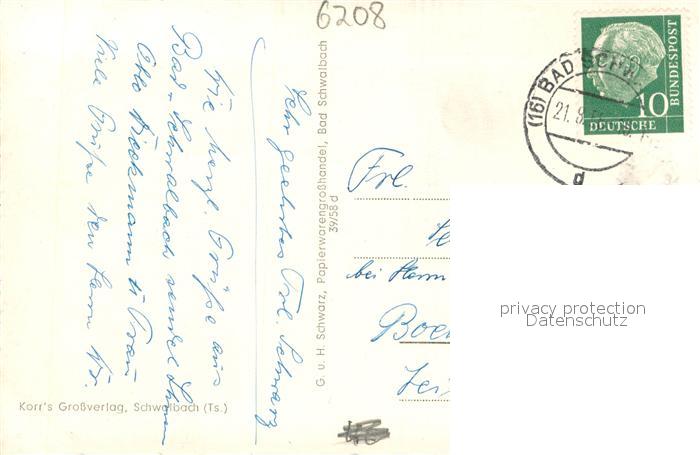 6208
Sehr geehrtes Frl. Schwarz
Die herzl. Grüße aus
Bad-Schwalbach sendet Ihnen
Otto Dickmann u. Frau
Viele Grüße den Herrn
G. u. H. Schwarz, Papierwarengroßhandel, Bad Schwalbach
39/58 d
Korr's Großverlag, Schwalbach (Ts.)
(16) BAD SCHW
21. 8.
d
10
DEUTSCHE
BUNDESPOST
Frl.
bei Herrn
privacy protection
Datenschutz